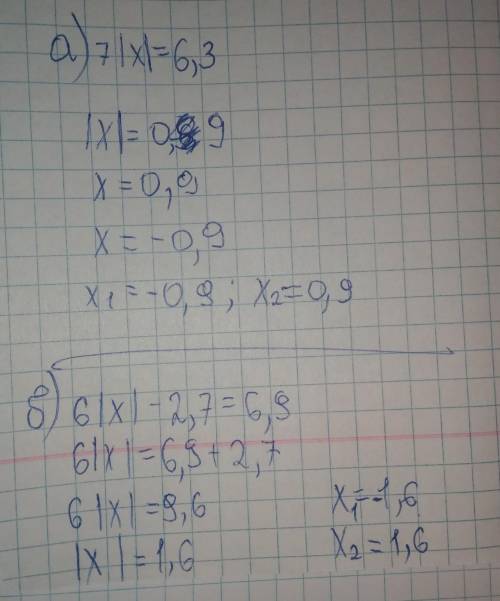 а) 7|x|=6,3
|x|=0,9
x=0,9
x=-0,9
x₁=-0,9; x₂=0,9
б) 6|x|-2,7=6,9
6|x|=6,9+2,7
6|x|=9,6
|x|=1,6
x₁=-1,6
x₂=1,6